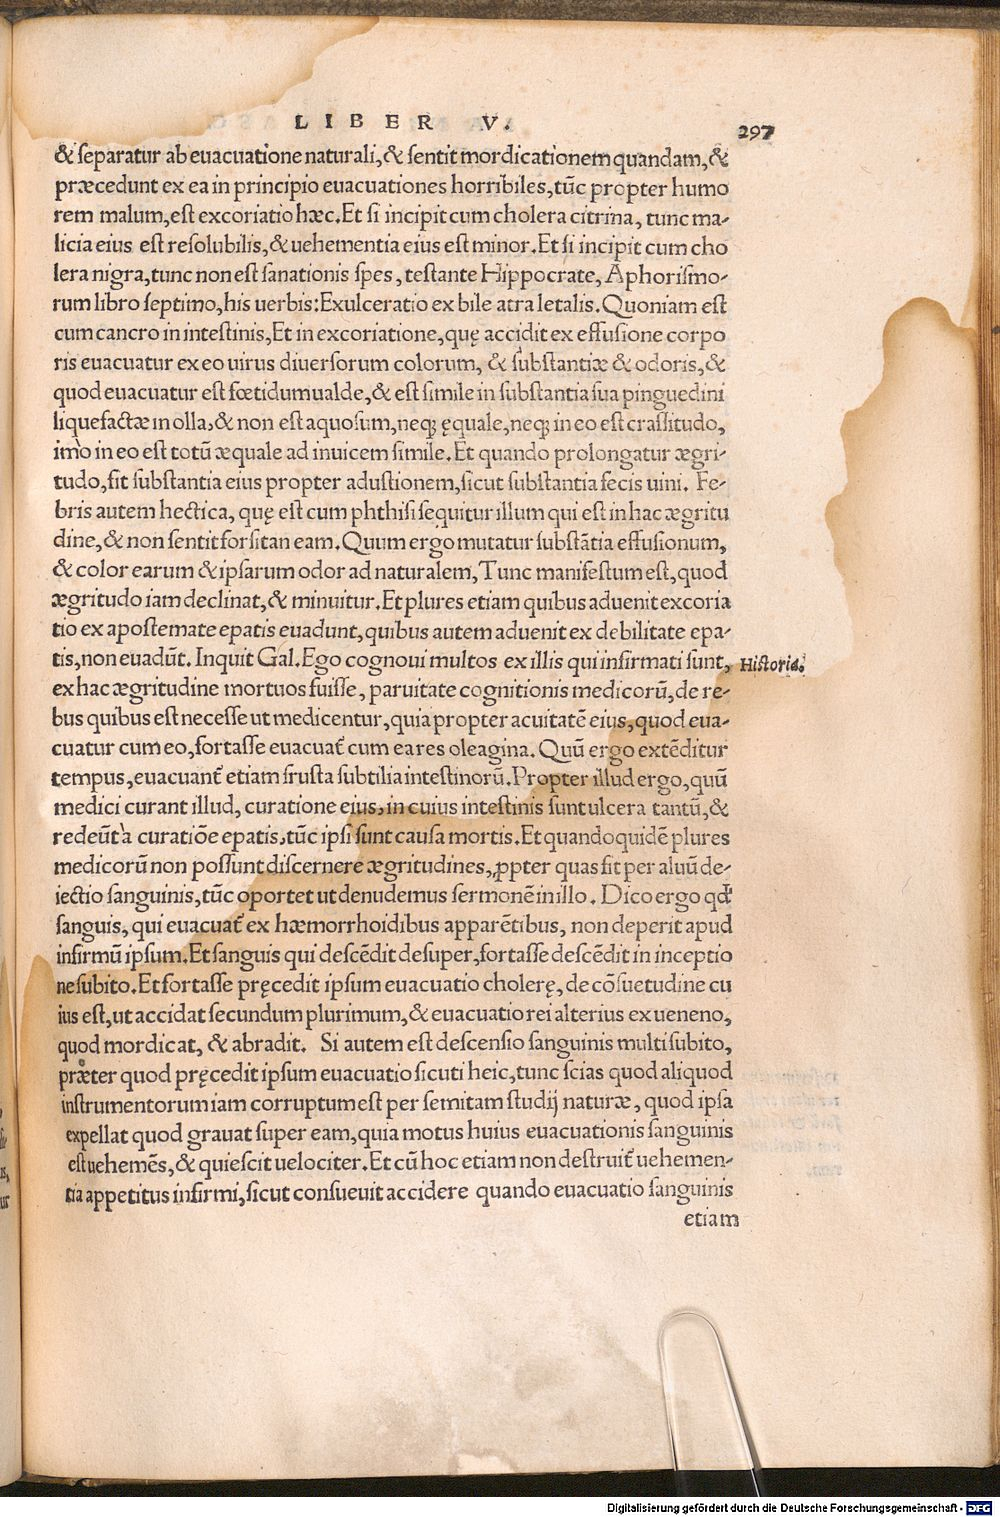 LIBER V. 297
& separatur ab euacuatione naturali, & sentit mordicationem quandam, &
præcedunt ex ea in principio euacuationes horribiles, tūc propter humo
rem malum, est excoriatio hæc. Et si incipit cum cholera citrina, tunc ma-
licia eius est resolubilis, & uehementia eius est minor. Et si incipit cum cho
lera nigra, tunc non est sanationis spes, testante Hippocrate, Aphorismo-
rum libro septimo, his uerbis: Exulceratio ex bile atra letalis. Quoniam est
cum cancro in intestinis, Et in excoriatione, quę accidit ex effusione corpo
ris euacuatur ex eo uirus diuersorum colorum, & substantiæ & odoris, &
quod euacuatur est fœtidum ualde, & est simile in substantia sua pinguedini
liquefactæ in olla, & non est aquosum, neq; ęquale, neq; in eo est crassitudo,
imò in eo est totū æquale ad inuicem simile. Et quando prolongatur ægri-
tudo, fit substantia eius propter adustionem, sicut substantia fecis uini. Fe-
bris autem hectica, quę est cum phthisi sequitur illum qui est in hac ægritu
dine, & non sentit forsitan eam. Quum ergo mutatur substātia effusionum,
& color earum & ipsarum odor ad naturalem, Tunc manifestum est, quod
ægritudo iam declinat, & minuitur. Et plures etiam quibus aduenit excoria
tio ex apostemate epatis euadunt, quibus autem aduenit ex debilitate epa-
tis, non euadūt. Inquit Gal. Ego cognoui multos ex illis qui infirmati sunt, Historia.
ex hac ægritudine mortuos fuisse, paruitate cognitionis medicorū, de re-
bus quibus est necesse ut medicentur, quia propter acuitatē eius, quod eua-
cuatur cum eo, fortasse euacuat̄ cum ea res oleagina. Quū ergo extēditur
tempus, euacuant̄ etiam frusta subtilia intestinorū. Propter illud ergo, quū
medici curant illud, curatione eius, in cuius intestinis sunt ulcera tantū, &
redeūt à curatiōe epatis, tūc ipsi sunt causa mortis. Et quandoquidē plures
medicorū non possunt discernere ægritudines, ꝓpter quas fit per aluū de-
iectio sanguinis, tūc oportet ut denudemus sermonē in illo. Dico ergo qđ
sanguis, qui euacuat̄ ex hæmorrhoidibus apparētibus, non deperit apud
infirmū ipsum. Et sanguis qui descēdit desuper, fortasse descēdit in inceptio
ne subito. Et fortasse pręcedit ipsum euacuatio cholerę, de cōsuetudine cu
ius est, ut accidat secundum plurimum, & euacuatio rei alterius ex ueneno,
quod mordicat, & abradit. Si autem est descensio sanguinis multi subito,
præter quod pręcedit ipsum euacuatio sicuti heic, tunc scias quod aliquod
instrumentorum iam corruptum est per semitam studij naturæ, quod ipsa
expellat quod grauat super eam, quia motus huius euacuationis sanguinis
est uehemēs, & quiescit uelociter. Et cū hoc etiam non destruit̄ uehemen-
tia appetitus infirmi, sicut consueuit accidere quando euacuatio sanguinis
etiam
Digitalisierung gefördert durch die Deutsche Forschungsgemeinschaft - DFG